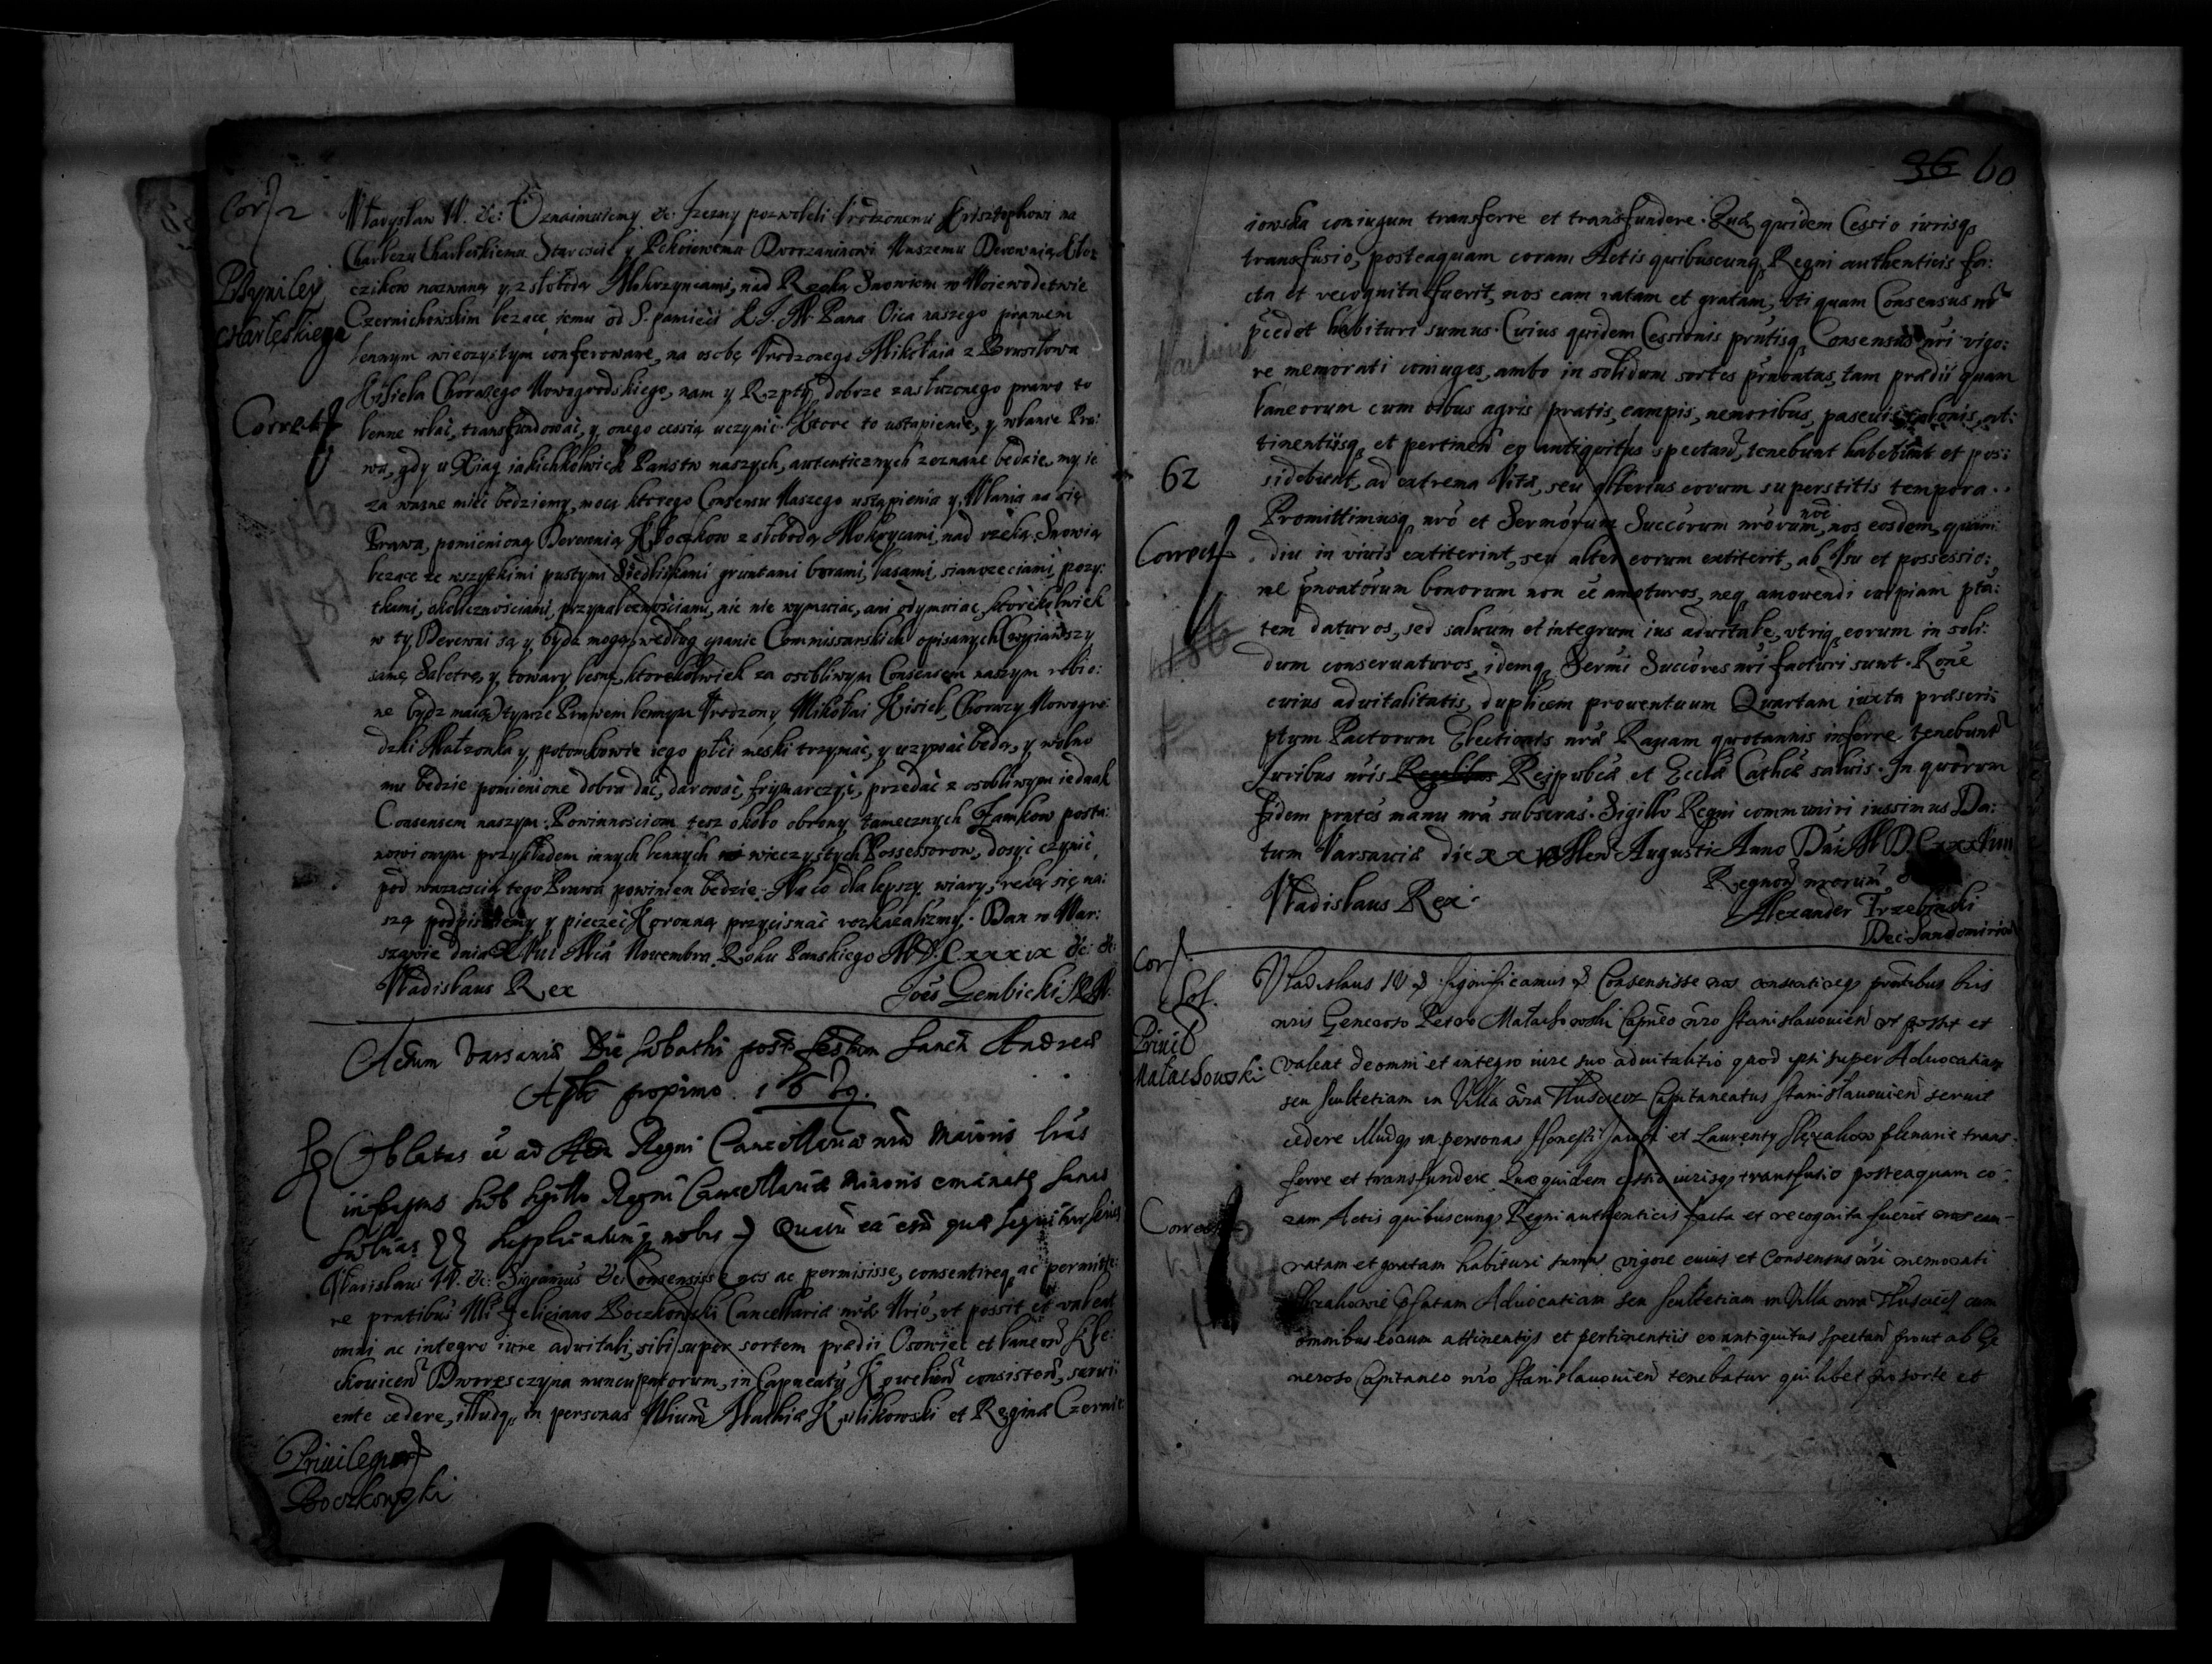 Corr
Władysław IV. &c: Oznaimuiemy &c. Jżeśmy pozwolili Vrodzonemu Krisztophowi na
Charlężu Charlęskiemu Staroście y Pokoiowemu Dworzaninowi Naszemu Derewnią
nazwaną y z słobodą Mokrzycami, nad Rzeką Snowiem w Woiewodztwie
Przywiley
Charlęskiego
Czernichowskim leżące iemu od S. pamięci K. J. M. Pana Oica naszego prawem
lennym wieczystym conferowane, na osobę Vrodzonego Mikołaia z Brusiłowa
Kisiela Chorążego Nowogrodskiego, nam y Rzptey dobrze zasłużonego prawo to
Correct
lenne wlać, transfundować, y onego cessią uczynić. Ktore to ustąpienie, y wlanie Pra:
wa, gdy u Xiąg iakichkolwiek Panstw naszych, autenticznych zeznane będzie, my ie
za ważne mieć będziemy, mocą ktorego Consensu Naszego ustąpienia y Wlania na się
Prawa, pomienioną Derewnią Kłoczkow z słobodą Mokrzycami, nad rzeką Snowią
leżące ze wszytkimi pustymi Siedliskami gruntami borami, lasami, sianożęciami, poży:
tkami, okolicznościami, przynależnościami, nic nie wymuiąc, ani odymuiąc, ktorekolwiek
w ty Derewni są y bydź mogą, według granic Commissarskich opisanych (wyiąwszy
samę Saletrę, y towary leśne, ktorekolwiek za osobliwym Consensem naszym robio:
ne bydź maią) tymże Prawem lennym Vrodzony Mikołai Kisiel, Chorąży Nowogro:
dzki Małżonka y potomkowie iego płci męski trzymać, y używać będą, y wolno
mu będzie pomienione dobra dać, darować, frymarczyć, przedać z osobliwym iednak
Consensem naszym. Powinnościom tesz około obrony tamecznych Zamkow posta:
nowionym przykładem innych lennych wieczystych Possessorow, dosyć czynić,
pod ważnością tego Prawa powinien będzie. Na co dla lepszy wiary, ręką się na:
szą podpisaliśmy y pieczęć Koronną przycisnąć rozkazaliśmy. Dan w War:
szawie dnia XVIII Mca Novembra Roku Panskiego M.D.C.xxxix &c: &c:
Vladislaus Rex
Joes Gembicki
Actum Varsaviæ Die Sabathi post festum Sancti Andreæ
Apli proximo. 1639.
Oblatas ee ad Acta Regni Cancellariæ nræ Maioris lras
infrascriptas sub sigillo Regni Cancellariæ minoris emanatas sanas
salvas supplicatumq nobis quatenus eas quæ sequitur
Vladislaus IV. &c: Significamus &c: Consensisse nos ac permisisse, consentireq ac permitte:
re pntibus Feliciano Boczkowski Cancellariæ nræ Nrio, vt possit et valeat
omni ac integro iure advitali, sibi super sortem prædii Osowiec et laneorum
Dworesczyna nuncupatorum, in Capneatu consisten, servi:
ente cedere, illudq in personas Mathiæ Kulikowski et Reginæ Czernie:
Privilegium
Boczkowski
36 60
iowska coniugum transferre et transfundere. Quæ quidem Cessio iurisq
transfusio, posteaquam coram Actis quibuscunq Regni authenticis fa:
cta et recognita fuerit, nos eam ratam et gratam, vti quam Consensus nr
præcedet habituri sumus. Cuius quidem Cessionis pntisq Consensus nri vigo:
re memorati coniuges, ambo in solidum sortes prænoatas, tam prædii quam
laneorum cum oibus agris pratis, campis, nemoribus, pascuis, colonis, at:
tinentiisq et pertinen eo antiquitus spectan, tenebunt habebunt et pos:
62
sidebunt, ad extrema Vitæ, seu alterius eorum superstitis tempora.
Promittimusq nro et Sermorum Succorum nrorum noe, nos eosdem, quam:
Correct
diu in vivis extiterint, seu alter eorum extiterit, ab Vsu et possessio:
ne prænoatorum bonorum non ee amoturos, neq amovendi cuipiam pta:
tem daturos, sed salvum et integrum ius advitale, vtriq eorum in soli:
dum conservaturos, idemq Sermi Succores nri facturi sunt. Rone
cuius advitalitatis, duplicem proventuum Quartam iuxta præscri:
ptum Pactorum Electionis nræ Ravam quotannis inferre tenebunt
Juribus nris Regalibus Reipublicæ et Ecclæ Cathcæ salvis. In quorum
fidem pntes manu nra subscras. Sigillo Regni communiri iussimus Da:
tum Varsaviæ die Mensis Augusti Anno Dni
Regnorum nrorum
Vladislaus Rex.
Alexander Trzebiński
Dec: Sandomirien
Corr
Vladislaus IV significamus Consensisse nos consentireq pntibus lris
nris Generoso Petro Małachowski Capneo nro Stanislavovien vt possit et
Privil
Małachowski
valeat de omni et integro iure suo advitalitio quod ipsi super Advocatiam
seu scultetiam in Villa nra Tłuscież Capitaneatus Stanislavovien servit
cedere illudq in personas Honesti Jacobi et Laurenty plenarie trans:
ferre et transfundere Quæ quidem cessio iurisq transfusio posteaquam co:
Correct
ram Actis quibuscunq Regni authenticis facta et recognita fuerit nos eam
ratam et gratam habituri sumus vigore cuius et Consensus nri memorati
pfatam Advocatiam seu scultetiam in Villa nra cum
omnibus eorum attinentijs et pertinentiis eo antiquitus spectan prout ab Ge
neroso Capitaneo nro Stanislavovien tenebatur quilibet pro sorte et